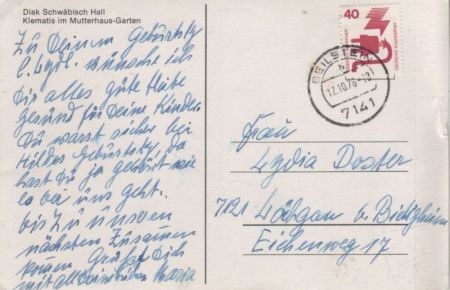 Diak Schwäbisch Hall
Klematis im Mutterhaus-Garten
Zu Deinem Geburtstg
l. Lydl. wünsche ich
Dir alles gute bleibe
gesund für Deine Kinder
Du warst sicher bei
Hildes Geburtstg, da
hast Du ja gehört wie
es bei uns geht.
bis zu unserem
nächsten Zusammen
kommen Grüßt Dich
mit all Deinen Lieben Maria
40
BEILSTEIN
b
12.10.76-18
7141
Frau
Lydia Doster
7121 Löchgau b. Bietigheim
Eichenweg 17